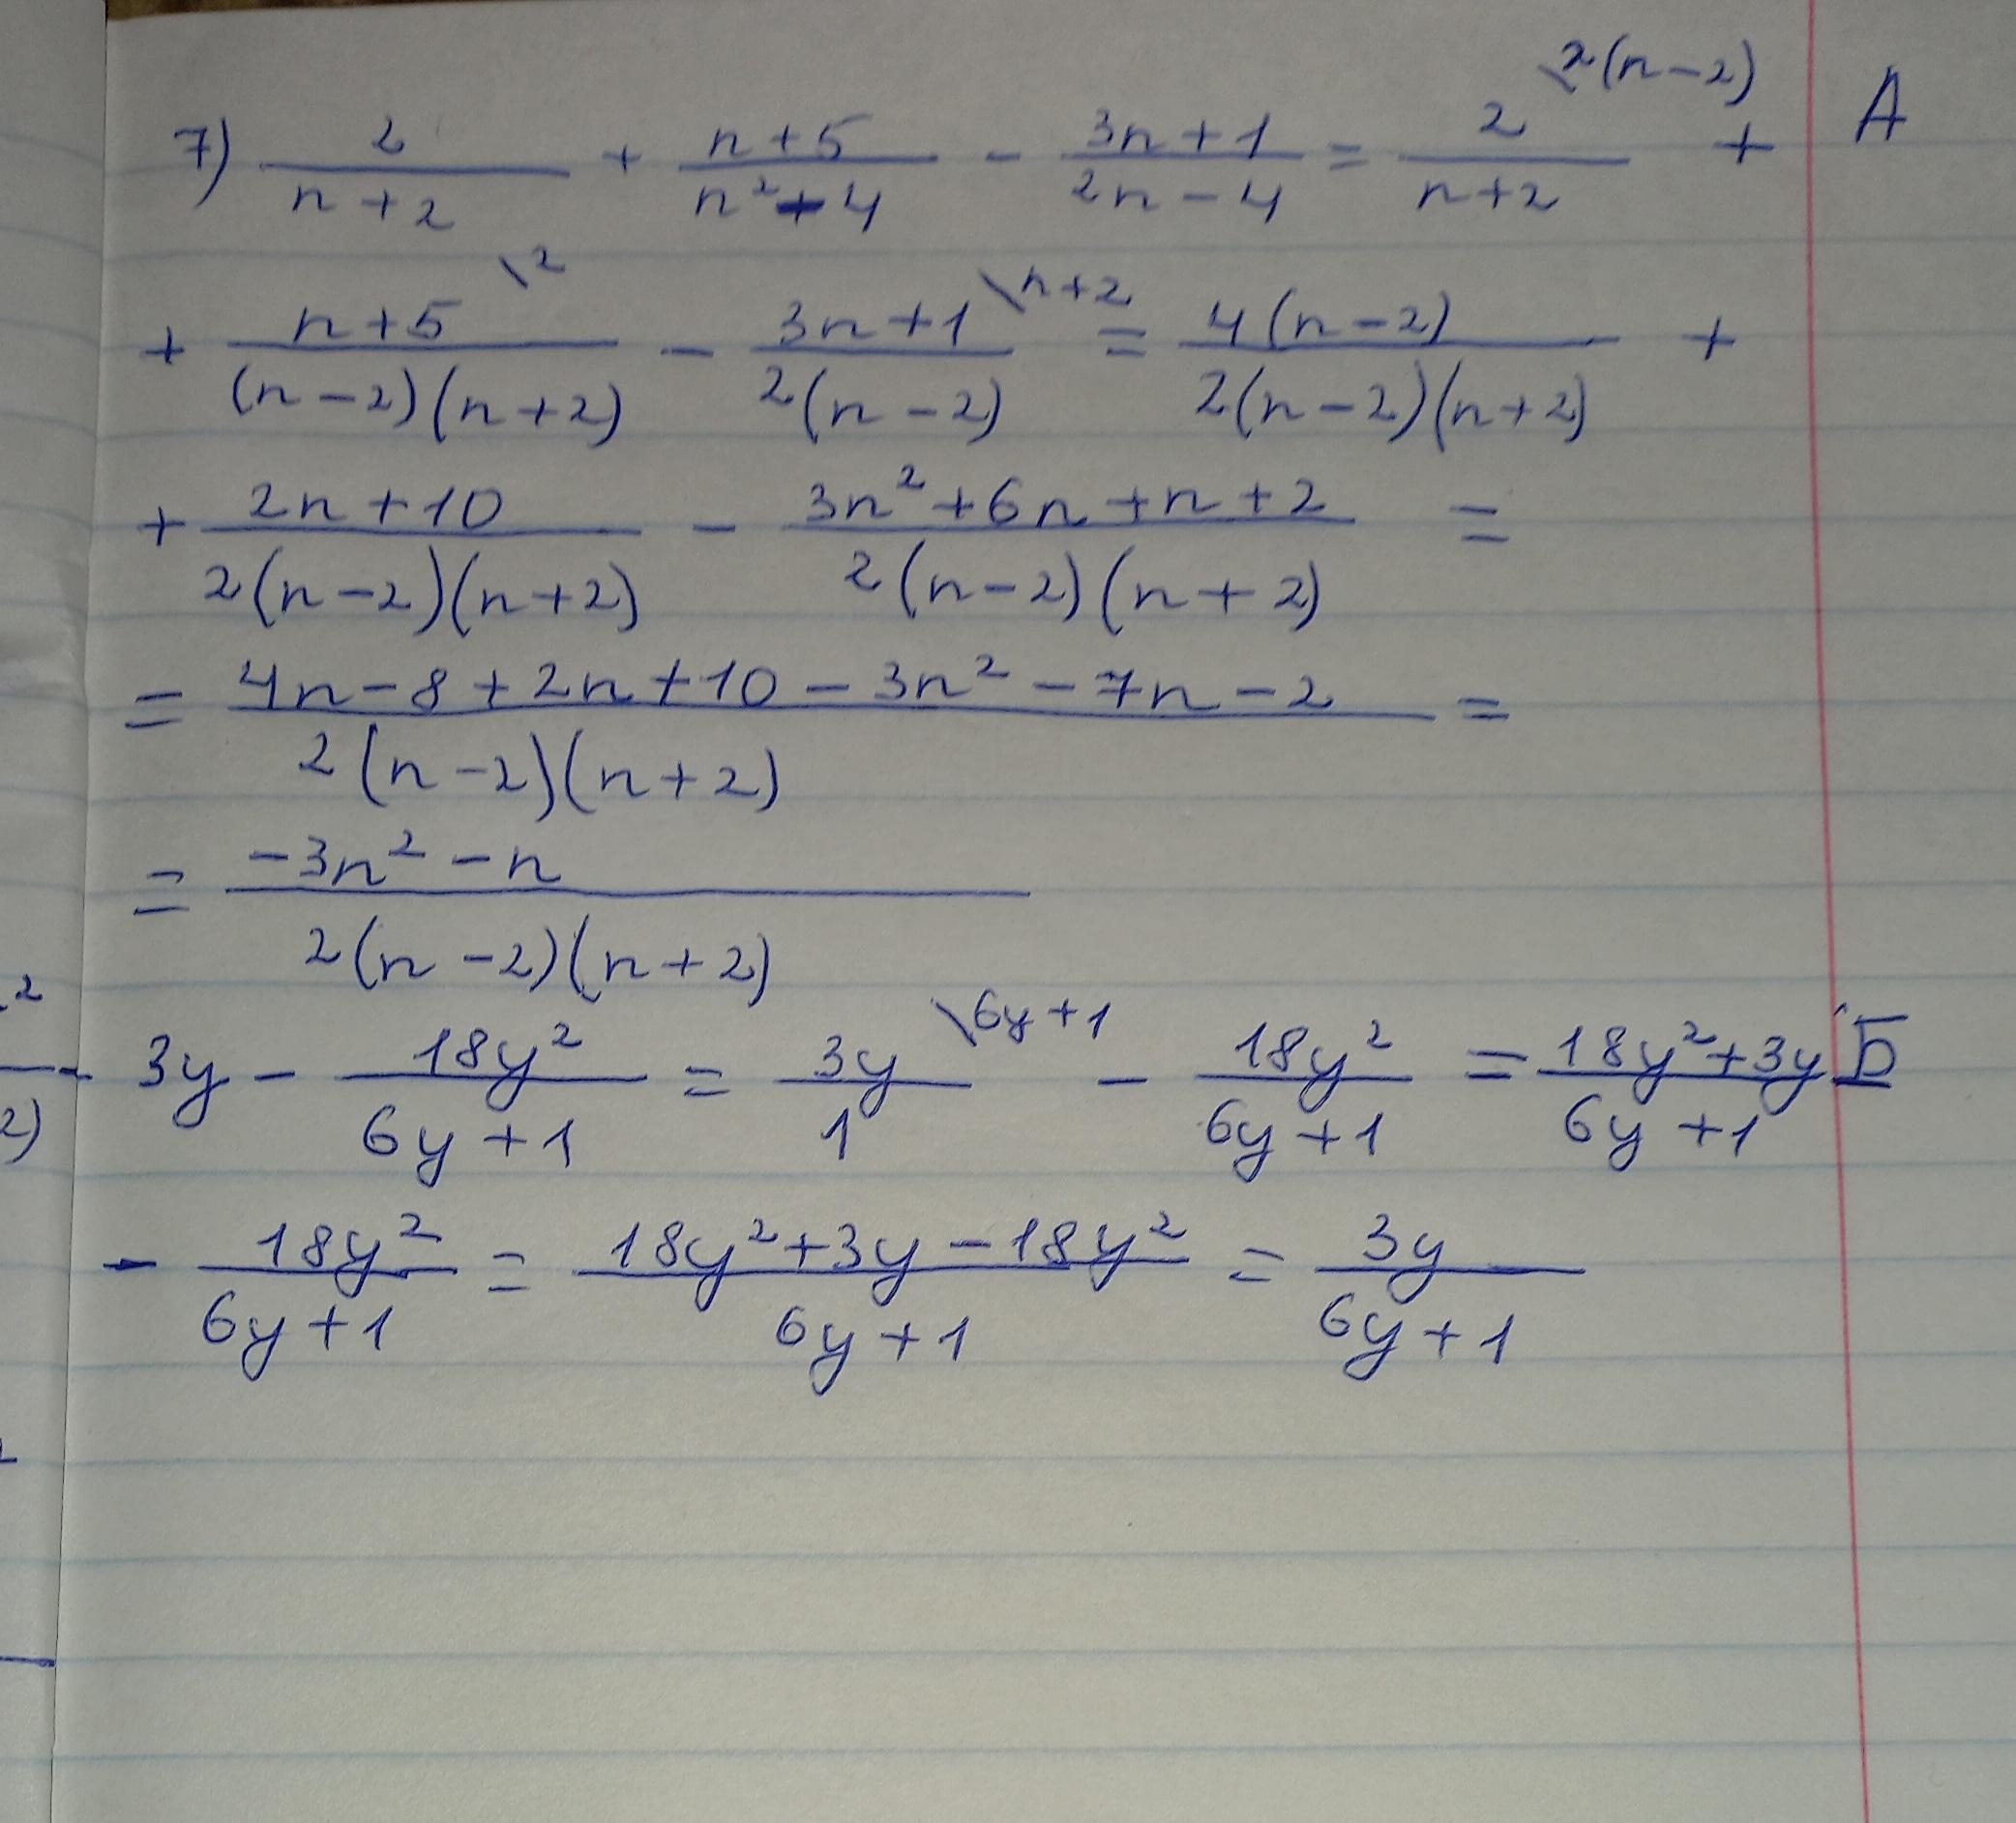 7) 2/(n+2) + (n+5)/(n²-4) - (3n+1)/(2n-4) = 2/(n+2) \2(n-2) + А
+ (n+5)/((n-2)(n+2)) \2 - (3n+1)/(2(n-2)) \n+2 = 4(n-2)/(2(n-2)(n+2)) +
+ (2n+10)/(2(n-2)(n+2)) - (3n²+6n+n+2)/(2(n-2)(n+2)) =
= (4n-8+2n+10-3n²-7n-2)/(2(n-2)(n+2)) =
= (-3n²-n)/(2(n-2)(n+2))
3y - 18y²/(6y+1) = 3y/1 \6y+1 - 18y²/(6y+1) = (18y²+3y)/(6y+1) Б
- 18y²/(6y+1) = (18y²+3y-18y²)/(6y+1) = 3y/(6y+1)
2
2)